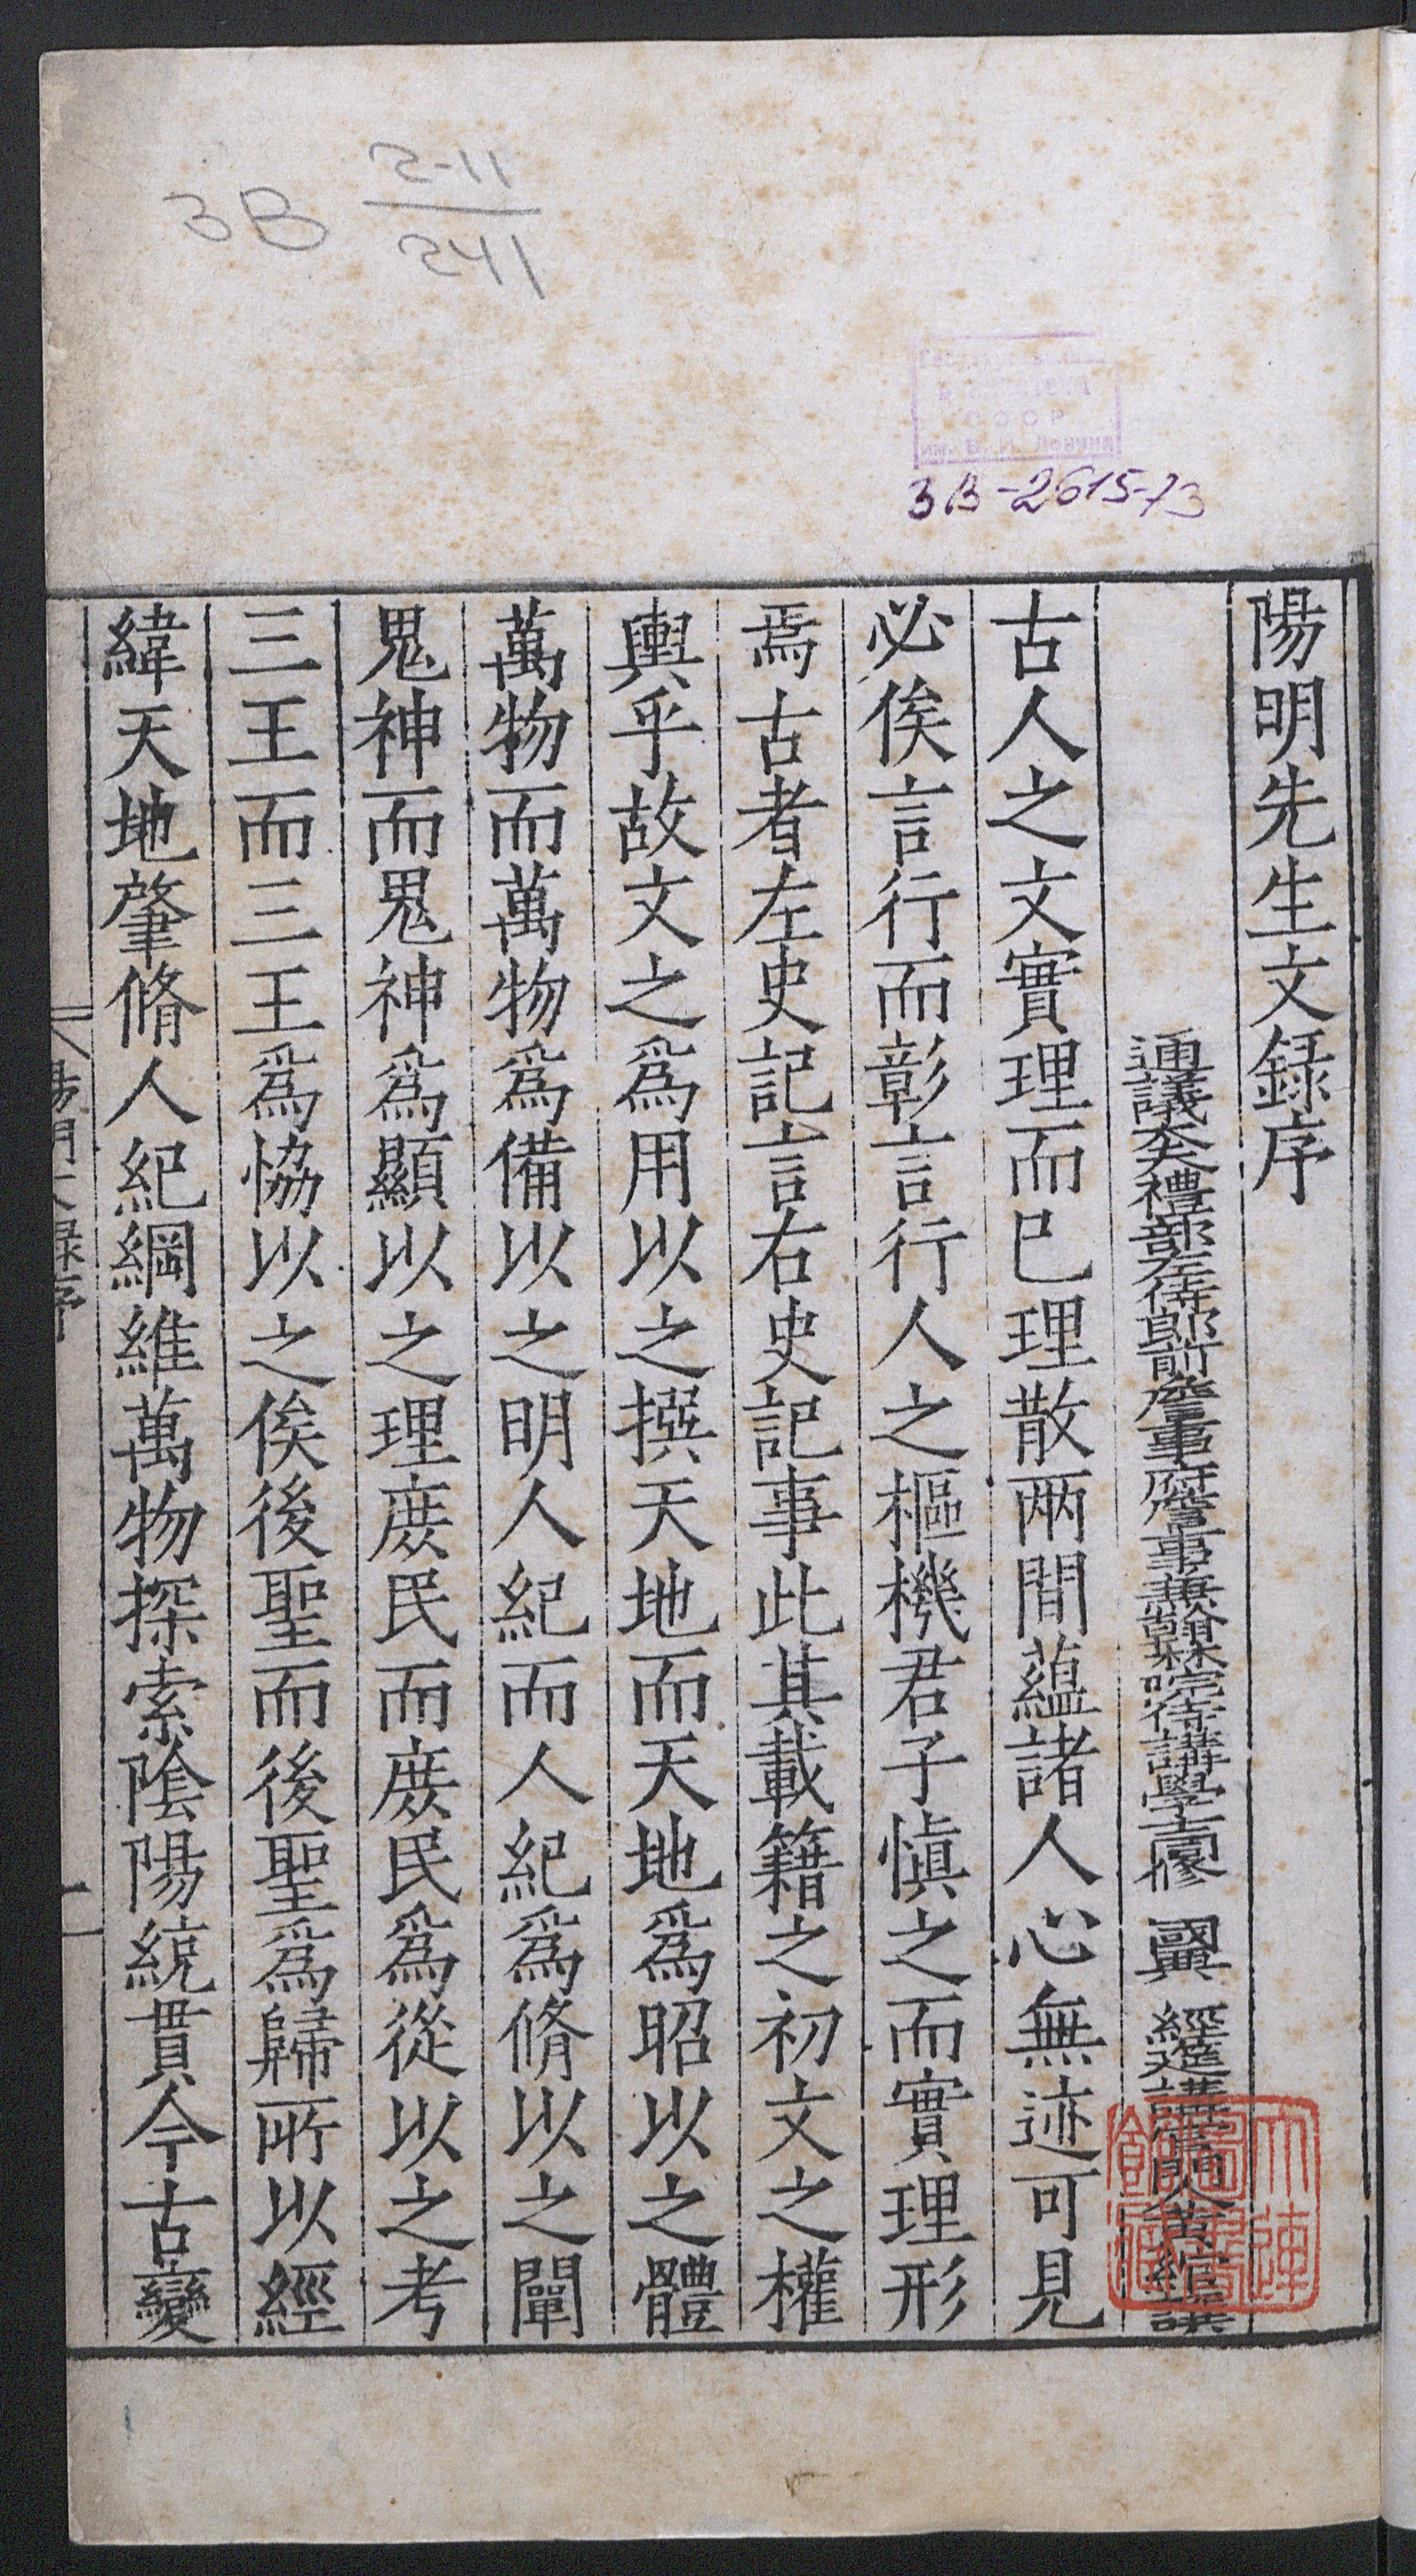 3В 2-11
241
СССР
им. В. И. Ленина
3В-2615-73
陽明先生文録序
通議大夫禮部左侍郎前詹事府詹事兼翰林院侍講學士同修 國典 經筵講官門人黄綰譔
古人之文實理而已理散兩間蘊諸人心無迹可見
必俟言行而彰言行人之樞機君子慎之而實理形
焉古者左史記言右史記事此其載籍之初文之權
輿乎故文之爲用以之撰天地而天地爲昭以之體
萬物而萬物爲備以之明人紀而人紀爲脩以之闡
鬼神而鬼神爲顯以之理庻民而庻民爲從以之考
三王而三王爲恊以之俟後聖而後聖爲歸所以經
緯天地肇脩人紀綱維萬物探索陰陽統貫今古變
陽明文録序
一
大連圖書館藏